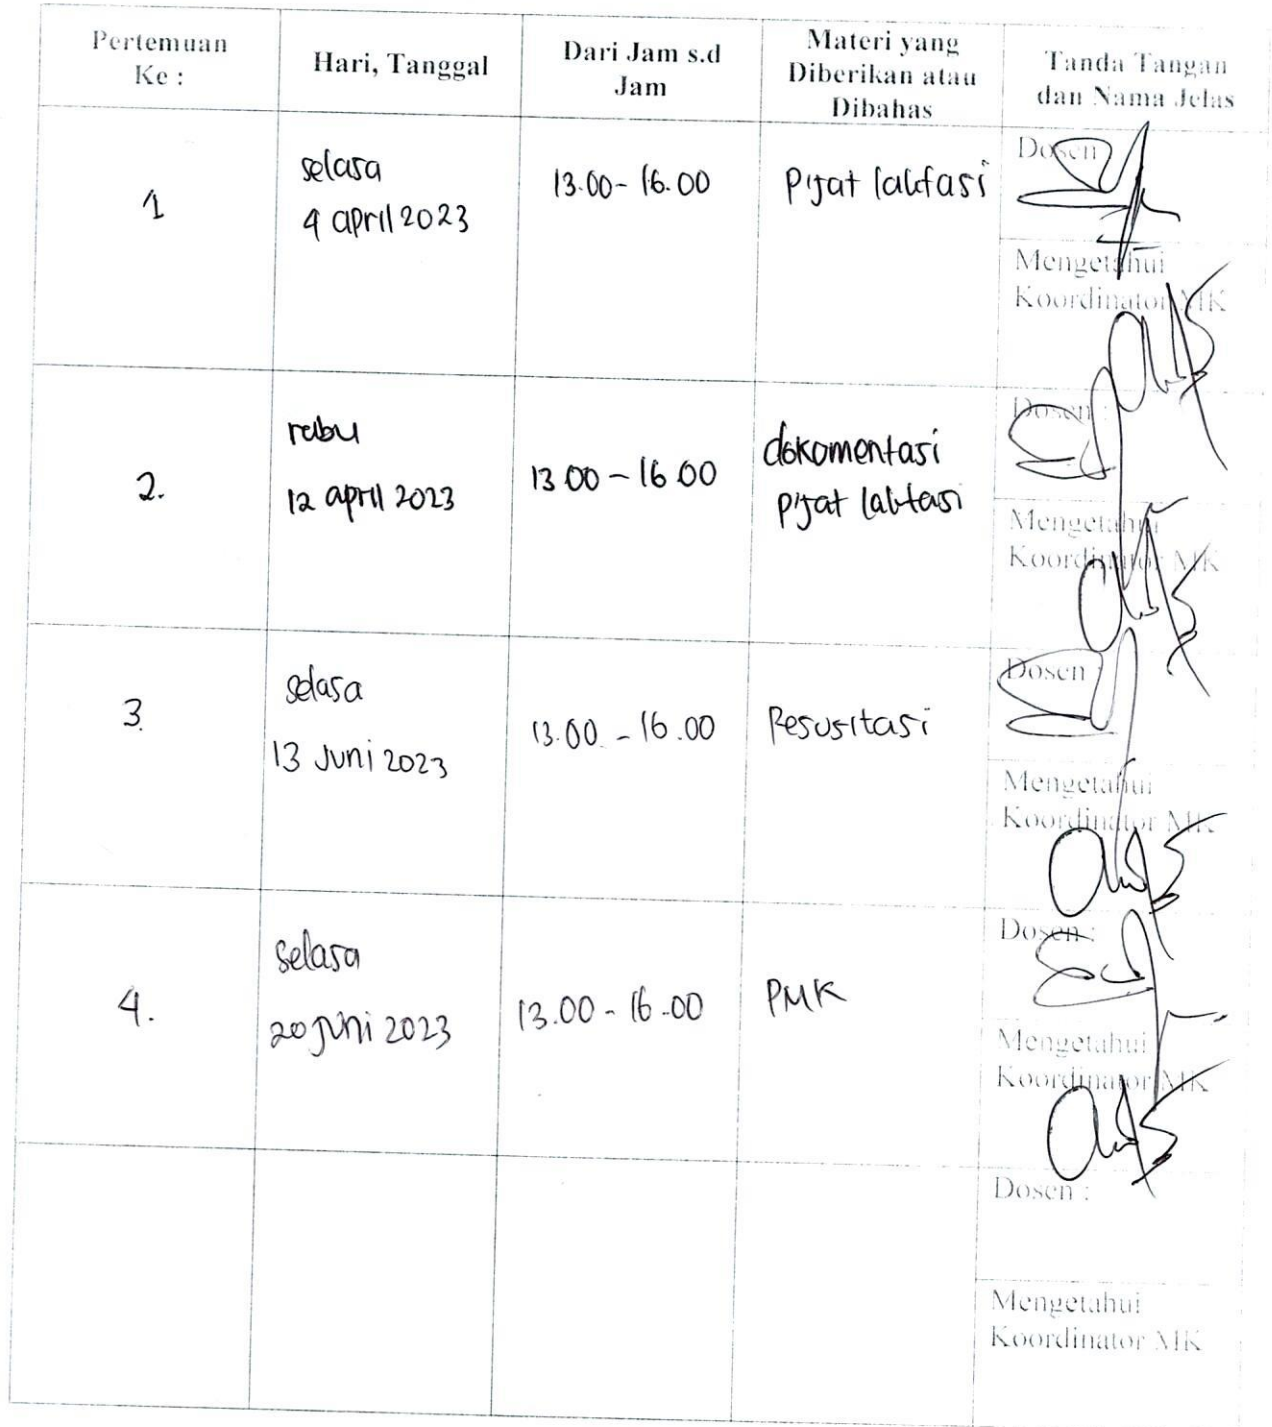 Pertemuan
Ke :
Hari, Tanggal
Dari Jam s.d
Jam
Materi yang
Diberikan atau
Dibahas
Tanda Tangan
dan Nama Jelas
1
selasa
4 april 2023
13.00 - 16.00
Pijat laktasi
Dosen :
Mengetahui
Koordinator MK
2.
rabu
12 april 2023
13.00 - 16.00
dokomentasi
pijat laktasi
Dosen :
Mengetahui
Koordinator MK
3.
selasa
13 Juni 2023
13.00 - 16.00
Resusitasi
Dosen :
Mengetahui
Koordinator MK
4.
selasa
20 juni 2023
13.00 - 16.00
PMK
Dosen :
Mengetahui
Koordinator MK
Dosen :
Mengetahui
Koordinator MK